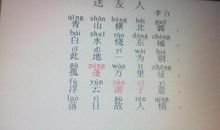 送友人
李白
qīng shān héng běi guō
青山横北郭
bái shuǐ rào dōng chéng
白水绕东城
cǐ dì yī wéi bié
此地一为别
gū péng wàn lǐ zhēng
孤蓬万里征
fú yún yóu zǐ yì
浮云游子意
luò rì gù rén qíng
落日故人情